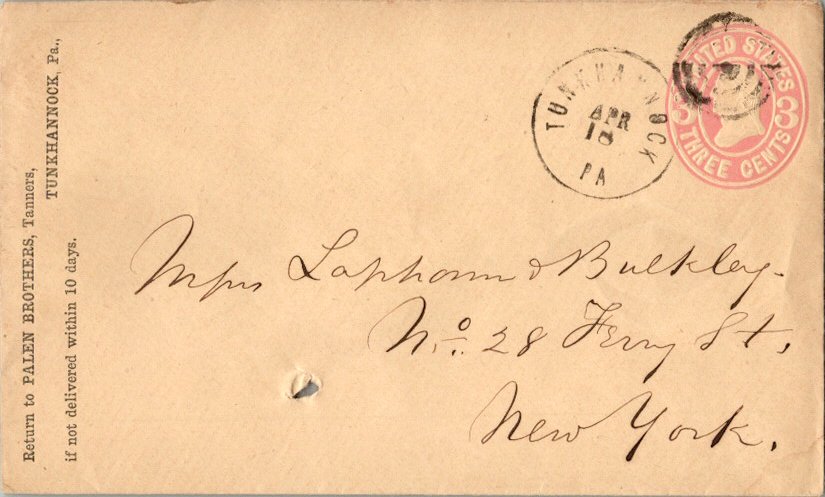 Return to PALEN BROTHERS, Tanners,
TUNKHANNOCK, Pa.,
if not delivered within 10 days.
TUNKHANNOCK
APR
18
PA
UNITED STATES
3 3
THREE CENTS
Messrs Lapham & Bulkley
No. 28 Ferry St,
New York.